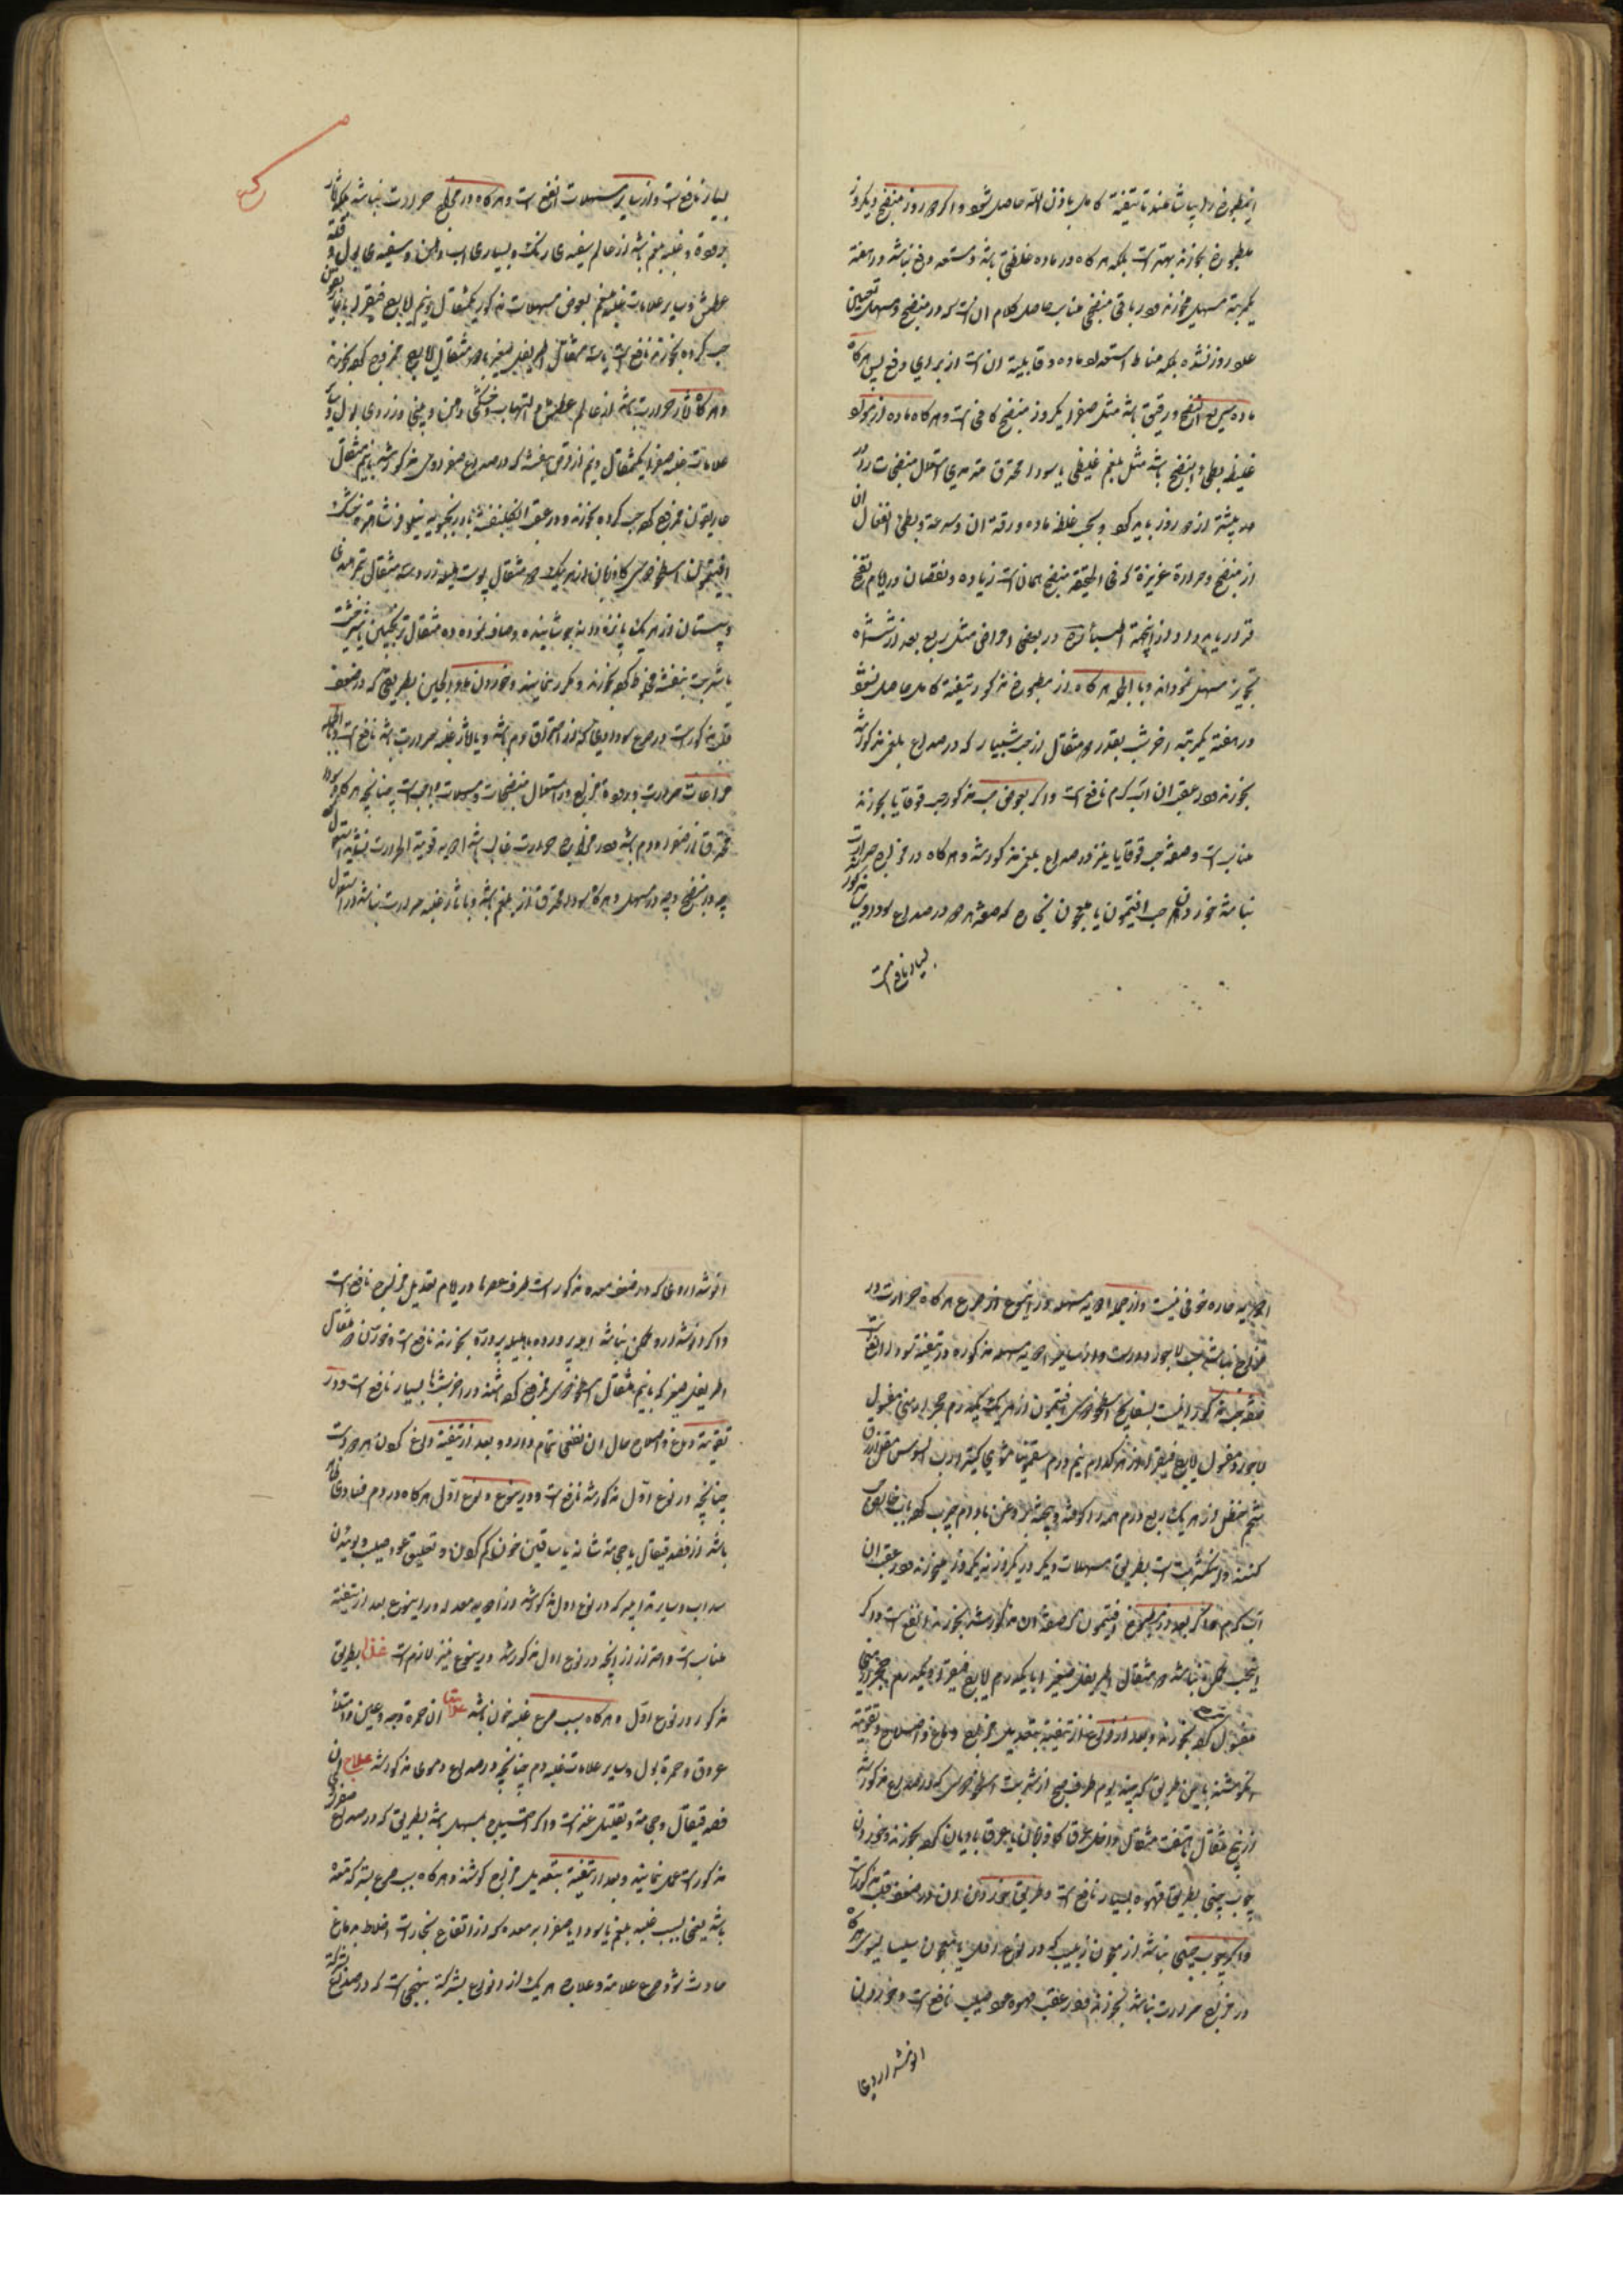 اینمطبوخ را بیاشامند تا تنقیه کامل باذن الله حاصل شود و اکر دو روز منضج و یکروز
مطبوخ بخورند بهتر است بلکه هرکاه در ماده غلظتی باشد و مستعد دفع نباشد در هفته
یکمرتبه مسهل بخورند و در باقی منضج مناسب حاصل کلام آنست که در منضج و مسهل تعیین
عدد روز نشده بلکه مناط استعداد ماده و قابلیة آنست از برای دفع پس هرکاه
ماده سریع النضج و رقیق باشد مثل صفرا یکروز منضج کافی است و هرکاه ماده از مواد
غلیظ بطی النضج باشد مثل بلغم غلیظ یا سودا محترق متمادی استعمال منضجات
بیشتر از دو روز باید کرد و بحسب غلظ ماده و رقة آن و سرعة و بطئ انفعال آن
از منضج و حرارة غریزة که فی الحقیقه منضج همانست زیاده و نقصان در ایام نضج
قرار باید داد از اینجهة در بعضی امراض مثل ربع بعد از ششماه
تجویز مسهل نموده‌اند و بالجمله هرکاه از مطبوخ مذکور تنقیه کامل حاصل نشود
در هفته یکمرتبه آخر شب بقدر دو مثقال از حب شبیار که در صداع بلغمی مذکور شد
بخورند و در عقب آن آب کرم نافع است و اکر بعوض حب مذکور حب قوقایا بخورند
مناسب است و صفة حب قوقایا نیز در صداع بلغمی مذکور شد و هرکاه در مزاج حرارت
نباشد خوردن حب افتیمون یا معجون نجاح که صفة هر دو در صداع سوداوی مذکور
بسیار نافع است
بسیار نافع است و از سایر مسهلات انفع است و هرکاه در مزاج حرارت نباشد بلکه آثار
برودة و غلبه بلغم باشد از عالم سفیدی رنک و بسیاری آب دهن و سفیدی بول و قلة
عطش و سایر علامات غلبه بلغم بعوض مسهلات مذکور یکمثقال و نیم ایارج فیقرا
حب کرده بخورند نافع است یا سه مثقال اطریفل صغیر با دو مثقال ایارج ممزوج کرده بخورند
و هرکاه آثار حرارت باشد از عالم عطش و التهاب و خشکی دهن و بینی و زردی بول و سایر
علامات غلبه صفرا یکمثقال و نیم از قرص بنفشه که در صداع صفراوی مذکور شد با نیم مثقال
غاریقون ممزوج کرده حب کرده بخورند و در عقب آن بنفشه بادرنجبویه نیلوفر شاهتره خشک
افتیمون اسطوخودوس کاوزبان از هر یک دو مثقال پوست هلیله زرد سه مثقال تمر هندی
و سپستان از هر یک پانزده دانه جوشانیده و صاف نموده ده مثقال ترنجبین شیرخشت
یا شربت بنفشه مخلوط کرده بخورند و مکرر نمایند و خوردن ماء الجبن بطریقی که در ضعف
قلب مذکور است در صرع سوداوی که از احتراق دم باشد و با آثار غلبه حرارت باشد نافع است و بالجمله
مراعات حرارت و برودة مزاج در استعمال منضجات و مسهلات واجب است چنانچه هرکاه سودا
محترق از صفرا و دم باشد و در مزاج حرارت غالب باشد ادویه قویة الحرارت نباید استعمال
چه در منضج و چه در مسهل و هرکاه سودا محترق از بلغم باشد و با آثار غلبه حرارت نباشد در استعمال
ادویه حاره خوفی نیست و از جمله ادویه مسهله در اینوع از صرع هرکاه حرارت در
مزاج نباشد حب لاجورد است و از سایر ادویه مسهله مذکوره در تنقیه سودا انفع است
صفة حب مذکور اینست بسفایج اسطوخودوس افتیمون از هر یک یکدرم حجر ارمنی مغسول
لاجورد مغسول ایارج فیقرا از هر کدام نیم درم سقمونیا مشوی کتیرا رب السوس مقل ازرق
شحم حنظل از هر یک ربع درم همه را کوفته و بیخته بروغن بادام چرب کرده بآب خالص حب
کنند و اینکشربت است بطریق مسهلات دیکر در یکروز نه یکروز میخورند و در عقب آن
آب کرم و اکر بعد از مطبوخ افتیمون که صفة آن مذکور شد بخورند انفع است و اکر
اینحب ممکن نباشد دو مثقال اطریفل صغیر را با یکدرم ایارج فیقرا و یکدرم حجر ارمنی
مغسول کرده بخورند و بعد از فراغ از تنقیه بتعدیل مزاج دماغ و اصلاح و تقویة
آن کوشند باین طریق که چند یوم طرف صبح از شربت اسطوخودوس که در صداع مذکور شد
از پنج مثقال تا هفت مثقال داخل عرق کاوزبان یا عرق بادیان کرده بخورند و خوردن
چوب چینی بطریق قهوه بسیار نافع است و طریق خوردن آن در ضعف قلب مذکور است
و اکر چوب چینی نباشد از معجون زبیب که در نوع اول یا معجون سیسالیوس هرکاه
در مزاج حرارت نباشد بخورند و در عقب قهوه عود صلیب نافع است و خوردن
انوشداروی
انوشداروی که در ضعف معده مذکور است طرف عصرها در ایام تعدیل مزاج نافع است
و اکر انوشدارو ممکن نباشد آمله پرورده یا هلیله پرورده بخورند نافع است و خوردن دو مثقال
اطریفل صغیر که با نیم مثقال اسطوخودوس ممزوج کرده باشند در آخر شبها بسیار نافع است و در
تقویة دماغ و اصلاح حال آن نفعی تمام دارد و بعد از تنقیه داغ کردن
چنانچه در نوع اول مذکور شد نافع است و در اینوع و نوع اول هرکاه در دم فسادی ظاهر
باشد از فصد قیفال یا حجامة شانه یا ساقین خون کم کردن و تعلیق عود صلیب و بوئیدن
سداب و سایر تدابیر که در نوع اول مذکور شد از ادویه معده در اینوع بعد از تنقیه
مناسب است و احتراز از آنچه در نوع اول مذکور شد در اینوع نیز لازم است غذا بطریق
مذکور در نوع اول و هرکاه سبب صرع غلبه خون باشد علامت آن حمرة وجه و عین و امتلاء
عروق و حمرة بول و سایر علامات غلبه دم چنانچه در صداع دموی مذکور شد علاج آن
فصد قیفال و حجامة و تقلیل غذاست و اکر احتیاج بمسهل باشد بطریقی که در صداع صفراوی
مذکور است عمل نمایند و بعد از تنقیه بتعدیل مزاج کوشند و هرکاه سبب صرع بشرکت معده
باشد یعنی بسبب غلبه بلغم یا سودا یا صفرا بر معده که از ارتفاع بخارات اخلاط بدماغ
حادث شود صرع علامة و علاج هر یک از انواع بشرکة بنهجی است که در صداع بشرکة